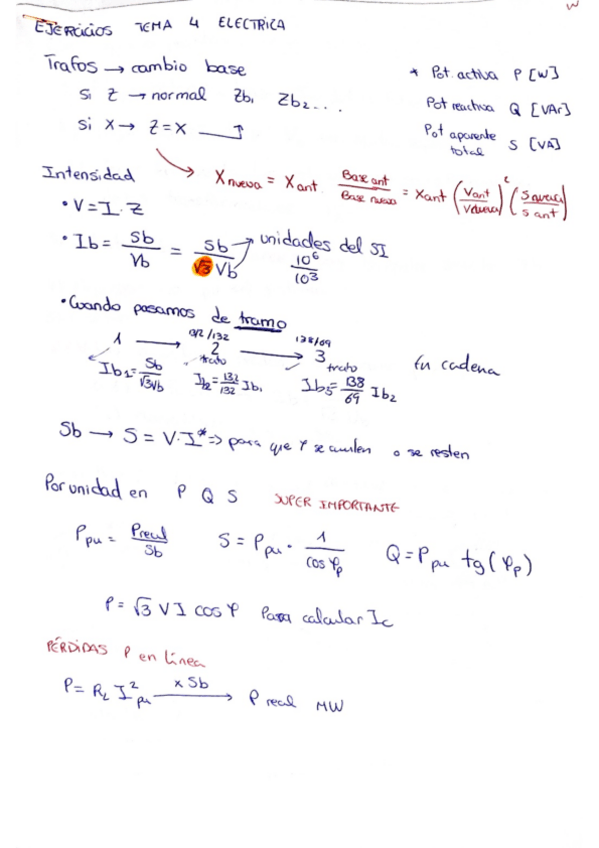 EJERCICIOS TEMA 4 ELECTRICA
Trafos → cambio base
Si Z → normal Zb1 Zb2 ...
si X → Z = X
* Pot. activa P [W]
Pot reactiva Q [VAr]
Pot aparente total S [VA]
X nueva = X ant. Base ant / Base nueva = X ant (V ant / V nueva)² (S nueva / S ant)
Intensidad
• V = I · Z
• Ib = Sb / Vb = Sb / √3 Vb → unidades del SI
10⁶ / 10³
• Cuando pasamos de tramo
1 → 2 → 3
/132 138/69
trafo trafo
En cadena
Ib1 = Sb / √3 Vb
Ib2 = 132 / Ib1
Ib3 = 138 / 69 Ib2
Sb → S = V · I* => para que φ se anulen o se resten
Por unidad en P Q S SUPER IMPORTANTE
Ppu = Preal / Sb
S = Ppu · 1 / cos φp
Q = Ppu tg(φp)
P = √3 V I cos φ Para calcular Ic
PÉRDIDAS P en línea
P = RL I²pu x Sb → P real MW